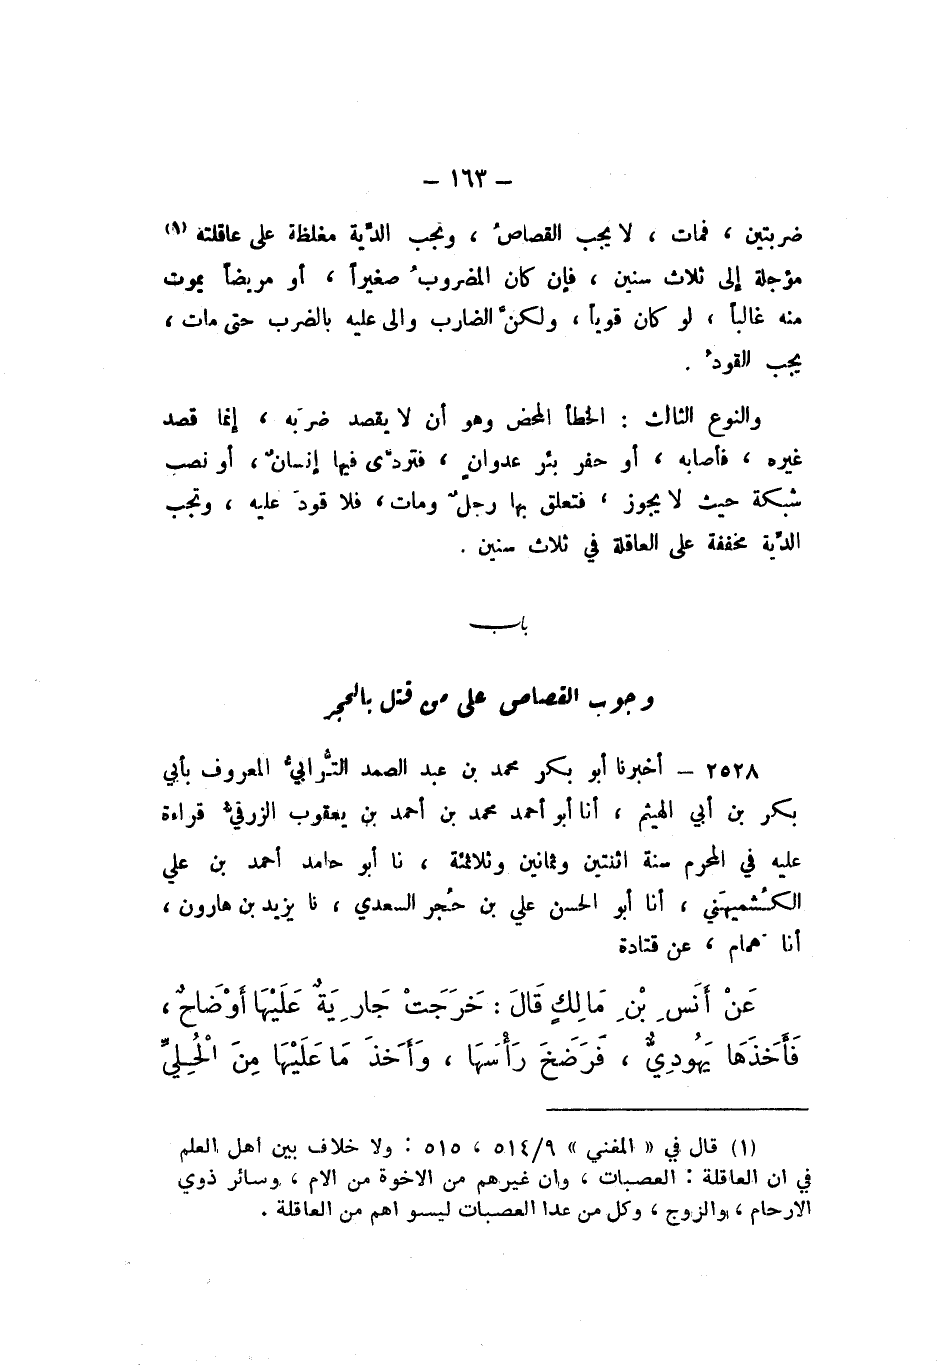 – ١٦٣ –
ضربتين ، فمات ، لا يجب القصاصُ ، وتجب الدِّية مغلظة على عاقلته (١)
مؤجلة إلى ثلاث سنين ، فإن كان المضروبُ صغيراً ، أو مريضاً يموت
منه غالباً ، لو كان قوياً ، ولكنَّ الضارب والى عليه بالضرب حتى مات ،
يجب القودُ .
والنوع الثالث : الخطأ المحض وهو أن لا يقصد ضربَه ، إنما قصد
غيره ، فأصابه ، أو حفر بئر عدوانٍ ، فتردَّى فيها إنسانٌ ، أو نصب
شبكة حيث لا يجوز ، فتعلق بها رجلٌ ومات ، فلا قودَ عليه ، وتجب
الدِّية مخففة على العاقلة في ثلاث سنين .
باب
وجوب القصاص على من قتل بالحجر
٢٥٢٨ – أخبرنا أبو بكر محمد بن عبد الصمد التُّرابيُّ المعروف بأبي
بكر بن أبي الهيثم ، أنا أبو أحمد محمد بن أحمد بن يعقوب الزرقيُّ قراءة
عليه في المحرم سنة اثنتين وثمانين وثلاثمئة ، نا أبو حامد أحمد بن علي
الكُشميهَني ، أنا أبو الحسن علي بن حُجر السعدي ، نا يزيد بن هارون ،
أنا همام ، عن قتادة
عَنْ أَنَسِ بْنِ مَالِكٍ قَالَ : خَرَجَتْ جَارِيَةٌ عَلَيْهَا أَوْضَاحٌ ،
فَأَخَذَهَا يَهُودِيٌّ ، فَرَضَخَ رَأْسَهَا ، وَأَخَذَ مَا عَلَيْهَا مِنَ الْحُلِيِّ
(١) قال في « المغني » ٥١٤/٩ ، ٥١٥ : ولا خلاف بين اهل العلم
في ان العاقلة : العصبات ، وان غيرهم من الاخوة من الام ، وسائر ذوي
الارحام ، والزوج ، وكل من عدا العصبات ليسو اهم من العاقلة .